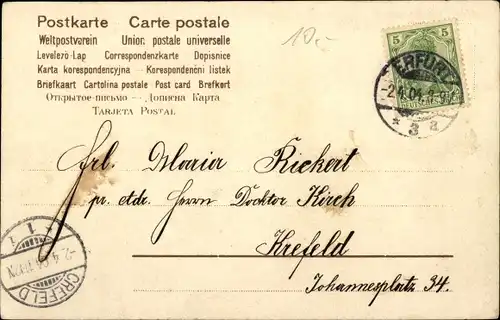 Postkarte Carte postale
Weltpostverein Union postale universelle
Levelező-Lap Correspondenzkarte Dopisnice
Karta korespondencyjna — Korespondenční listek
Briefkaart Cartolina postale Post card Brefkort
Открытое-письмо — Дописна Карта
TARJETA POSTAL
10.-
5 5
ERFURT
-2.4.04
* 3 a
Frl. Maria Rickert
pr. adr. Herrn Docktor Kirch
Krefeld
Johannesplatz 34.
1 1
-2.4.04
CREFELD